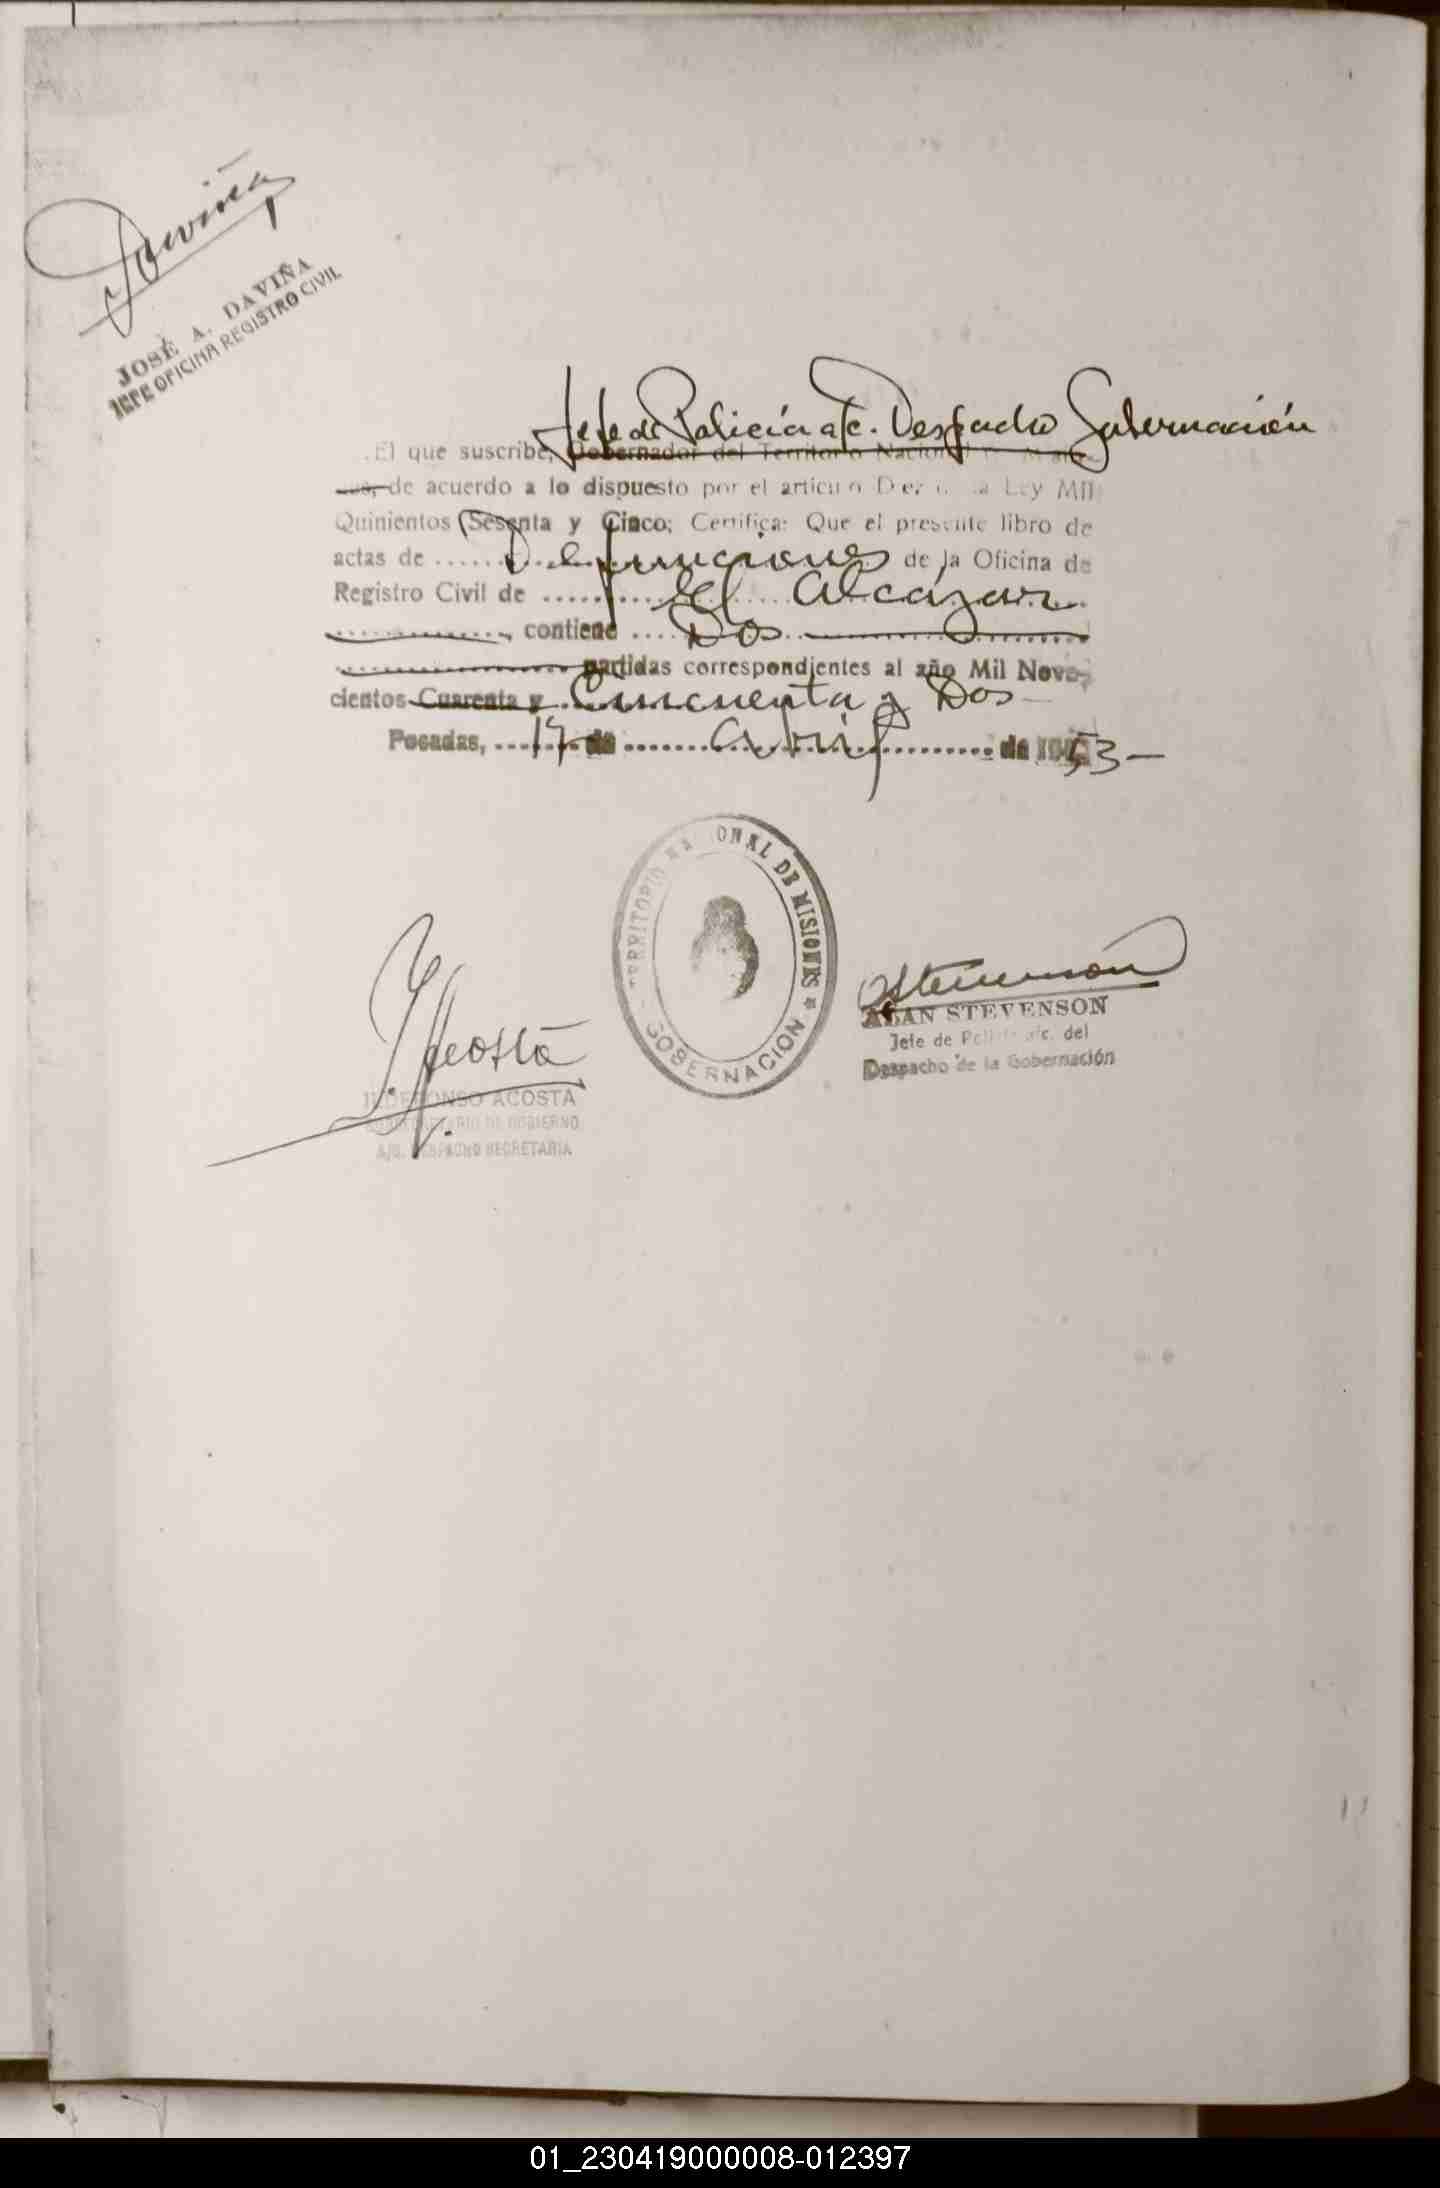 Daviña
JOSÉ A. DAVIÑA
JEFE OFICINA REGISTRO CIVIL
Jefe de Policía a/c. Despacho Gobernación
El que suscribe, Gobernador del Territorio Nacional
de acuerdo a lo dispuesto por el artículo Diez la Ley Mil
Quinientos Sesenta y Cinco; Certifica: Que el presente libro de
actas de Defunciones de la Oficina de
Registro Civil de El Alcázar
contiene Dos
partidas correspondientes al año Mil Nove-
cientos Cuarenta y Cincuenta y Dos
Posadas, 17 de abril de 1953-
TERRITORIO NACIONAL DE MISIONES * GOBERNACION
Y. Acosta
ILDEFONSO ACOSTA
SUBSECRETARIO DE GOBIERNO
A/C. DESPACHO SECRETARIA
Stevenson
ALAN STEVENSON
Jefe de Policía a/c. del
Despacho de la Gobernación
01_230419000008-012397